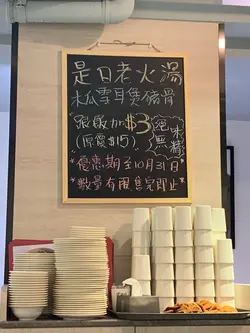 是日老火湯
木瓜雪耳煲豬骨
跟飯加$3
(原價$15)
絕無味精
*優惠期至10月31日*
*數量有限售完即止*